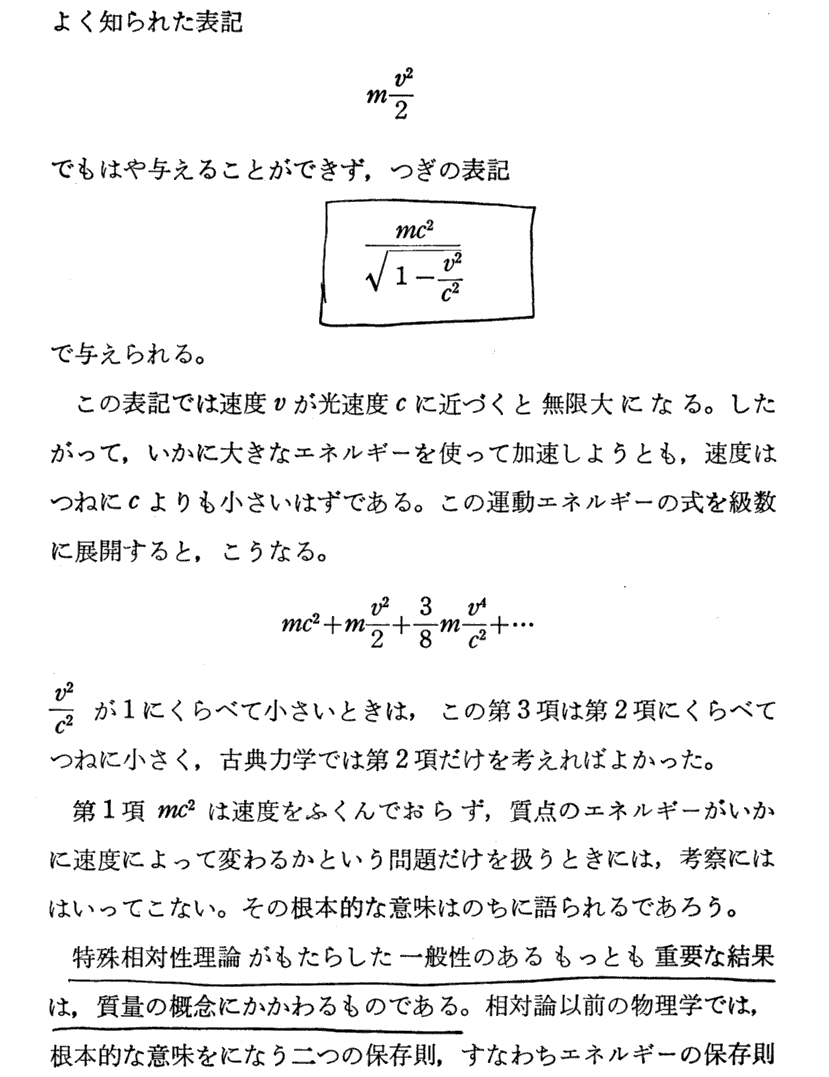 よく知られた表記
m v²/2
でもはや与えることができず，つぎの表記
mc²/√(1−v²/c²)
で与えられる。
この表記では速度 v が光速度 c に近づくと無限大になる。した
がって，いかに大きなエネルギーを使って加速しようとも，速度は
つねに c よりも小さいはずである。この運動エネルギーの式を級数
に展開すると，こうなる。
mc²+m v²/2+3/8 m v⁴/c²+⋯
v²/c² が1にくらべて小さいときは，この第3項は第2項にくらべて
つねに小さく，古典力学では第2項だけを考えればよかった。
第1項 mc² は速度をふくんでおらず，質点のエネルギーがいか
に速度によって変わるかという問題だけを扱うときには，考察には
はいってこない。その根本的な意味はのちに語られるであろう。
特殊相対性理論がもたらした一般性のあるもっとも重要な結果
は，質量の概念にかかわるものである。相対論以前の物理学では，
根本的な意味をになう二つの保存則，すなわちエネルギーの保存則